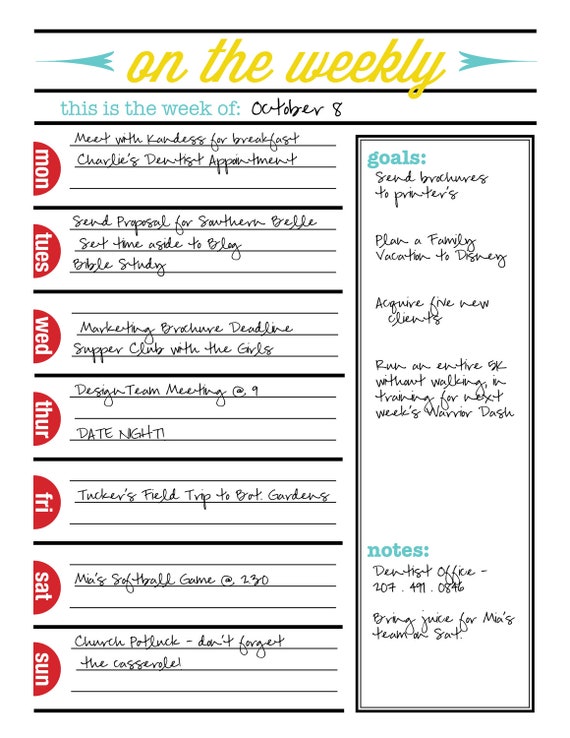 on the weekly
this is the week of: October 8
mon
Meet with Kandess for breakfast
Charlie's Dentist Appointment
tues
Send Proposal for Southern Belle
Set time aside to Blog
Bible Study
wed
Marketing Brochure Deadline
Supper Club with the Girls
thur
Design Team Meeting @ 9
DATE NIGHT!
fri
Tucker's Field Trip to Bot. Gardens
sat
Mia's Softball Game @ 230
sun
Church Potluck - don't forget
the casserole!
goals:
Send brochures
to printer's
Plan a Family
Vacation to Disney
Acquire five new
clients
Run an entire 5K
without walking, in
training for next
week's Warrior Dash
notes:
Dentist Office -
207 . 491 . 0846
Bring juice for Mia's
team on Sat.